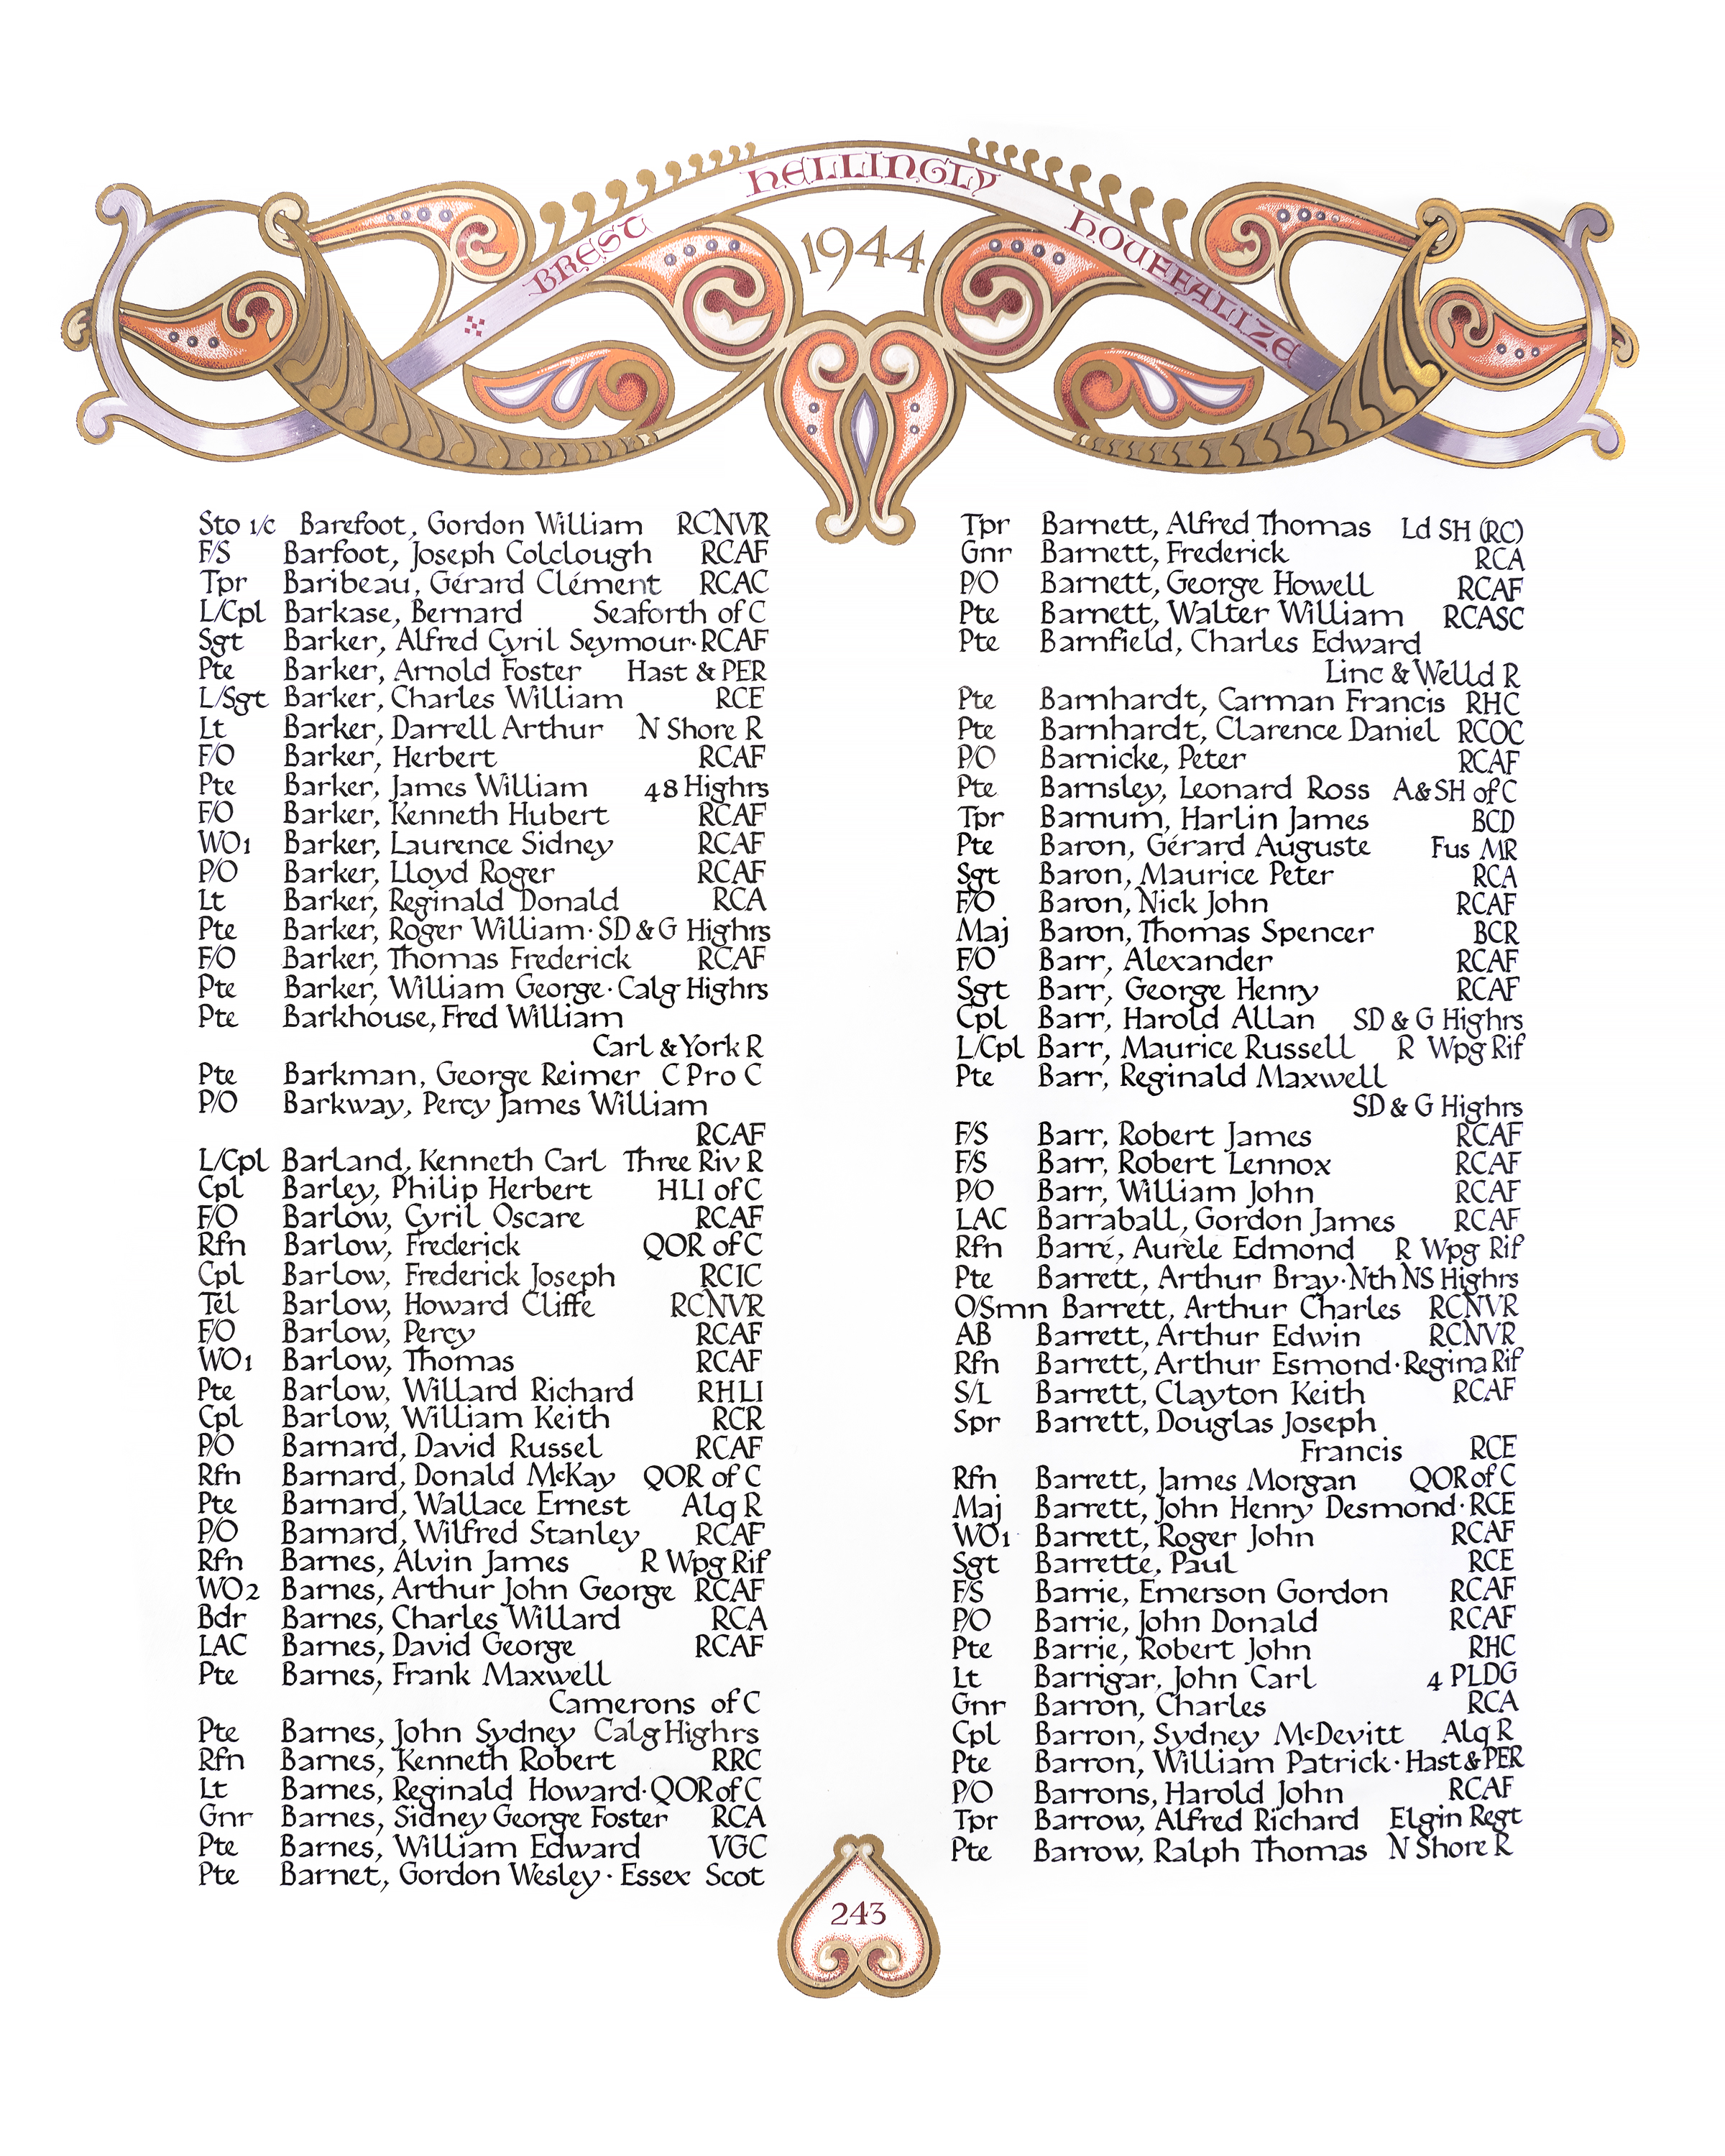 BREST HELLINGLY HOUFFALIZE
1944
Sto 1/c Barefoot, Gordon William RCNVR
F/S Barfoot, Joseph Colclough RCAF
Tpr Baribeau, Gérard Clément RCAC
L/Cpl Barkase, Bernard Seaforth of C
Sgt Barker, Alfred Cyril Seymour·RCAF
Pte Barker, Arnold Foster Hast & PER
L/Sgt Barker, Charles William RCE
Lt Barker, Darrell Arthur N Shore R
F/O Barker, Herbert RCAF
Pte Barker, James William 48 Highrs
F/O Barker, Kenneth Hubert RCAF
WO1 Barker, Laurence Sidney RCAF
P/O Barker, Lloyd Roger RCAF
Lt Barker, Reginald Donald RCA
Pte Barker, Roger William·SD & G Highrs
F/O Barker, Thomas Frederick RCAF
Pte Barker, William George·Calg Highrs
Pte Barkhouse, Fred William
Carl & York R
Pte Barkman, George Reimer C Pro C
P/O Barkway, Percy James William
RCAF
L/Cpl Barland, Kenneth Carl Three Riv R
Cpl Barley, Philip Herbert HLI of C
F/O Barlow, Cyril Oscare RCAF
Rfn Barlow, Frederick QOR of C
Cpl Barlow, Frederick Joseph RCIC
Tel Barlow, Howard Cliffe RCNVR
F/O Barlow, Percy RCAF
WO1 Barlow, Thomas RCAF
Pte Barlow, Willard Richard RHLI
Cpl Barlow, William Keith RCR
P/O Barnard, David Russel RCAF
Rfn Barnard, Donald McKay QOR of C
Pte Barnard, Wallace Ernest Alq R
P/O Barnard, Wilfred Stanley RCAF
Rfn Barnes, Alvin James R Wpg Rif
WO2 Barnes, Arthur John George RCAF
Bdr Barnes, Charles Willard RCA
LAC Barnes, David George RCAF
Pte Barnes, Frank Maxwell
Camerons of C
Pte Barnes, John Sydney Calg Highrs
Rfn Barnes, Kenneth Robert RRC
Lt Barnes, Reginald Howard·QOR of C
Gnr Barnes, Sidney George Foster RCA
Pte Barnes, William Edward VGC
Pte Barnet, Gordon Wesley·Essex Scot
Tpr Barnett, Alfred Thomas Ld SH (RC)
Gnr Barnett, Frederick RCA
P/O Barnett, George Howell RCAF
Pte Barnett, Walter William RCASC
Pte Barnfield, Charles Edward
Linc & Welld R
Pte Barnhardt, Carman Francis RHC
Pte Barnhardt, Clarence Daniel RCOC
P/O Barnicke, Peter RCAF
Pte Barnsley, Leonard Ross A&SH of C
Tpr Barnum, Harlin James BCD
Pte Baron, Gérard Auguste Fus MR
Sgt Baron, Maurice Peter RCA
F/O Baron, Nick John RCAF
Maj Baron, Thomas Spencer BCR
F/O Barr, Alexander RCAF
Sgt Barr, George Henry RCAF
Cpl Barr, Harold Allan SD & G Highrs
L/Cpl Barr, Maurice Russell R Wpg Rif
Pte Barr, Reginald Maxwell
SD & G Highrs
F/S Barr, Robert James RCAF
F/S Barr, Robert Lennox RCAF
P/O Barr, William John RCAF
LAC Barraball, Gordon James RCAF
Rfn Barré, Aurèle Edmond R Wpg Rif
Pte Barrett, Arthur Bray·Nth NS Highrs
O/Smn Barrett, Arthur Charles RCNVR
AB Barrett, Arthur Edwin RCNVR
Rfn Barrett, Arthur Esmond·Regina Rif
S/L Barrett, Clayton Keith RCAF
Spr Barrett, Douglas Joseph
Francis RCE
Rfn Barrett, James Morgan QOR of C
Maj Barrett, John Henry Desmond·RCE
WO1 Barrett, Roger John RCAF
Sgt Barrette, Paul RCE
F/S Barrie, Emerson Gordon RCAF
P/O Barrie, John Donald RCAF
Pte Barrie, Robert John RHC
Lt Barrigar, John Carl 4 PLDG
Gnr Barron, Charles RCA
Cpl Barron, Sydney McDevitt Alq R
Pte Barron, William Patrick·Hast & PER
P/O Barrons, Harold John RCAF
Tpr Barrow, Alfred Richard Elgin Regt
Pte Barrow, Ralph Thomas N Shore R
243